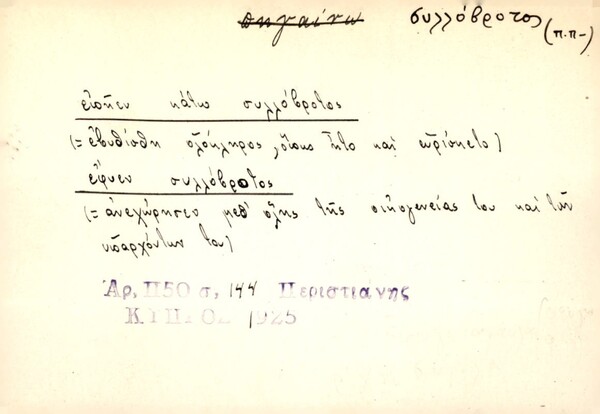 πηγαίνω συλλόβροτος
(π.π-)
εἰσῆεν κάτω συλλόβροτος
(= ἐβυθίσθη ὁλόκληρος, ὅπως ἦτο καὶ εὑρίσκετο)
ἔφυεν συλλόβροτος
(= ἀνεχώρησεν μεθ' ὅλης τῆς οἰκογενείας του καὶ τῶν
ὑπαρχόντων του)
Ἀρ. Π50 σ. 144 Περιστιάνης
ΚΥΠΡΟΣ 1925